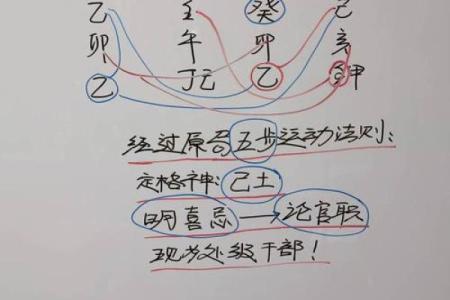 乙 壬 癸 己
卯 午 卯 亥
乙 丁己 乙 壬甲
经过原局五步运动法则:
定格神: 己土
明喜忌→论官职
现为处级干部!